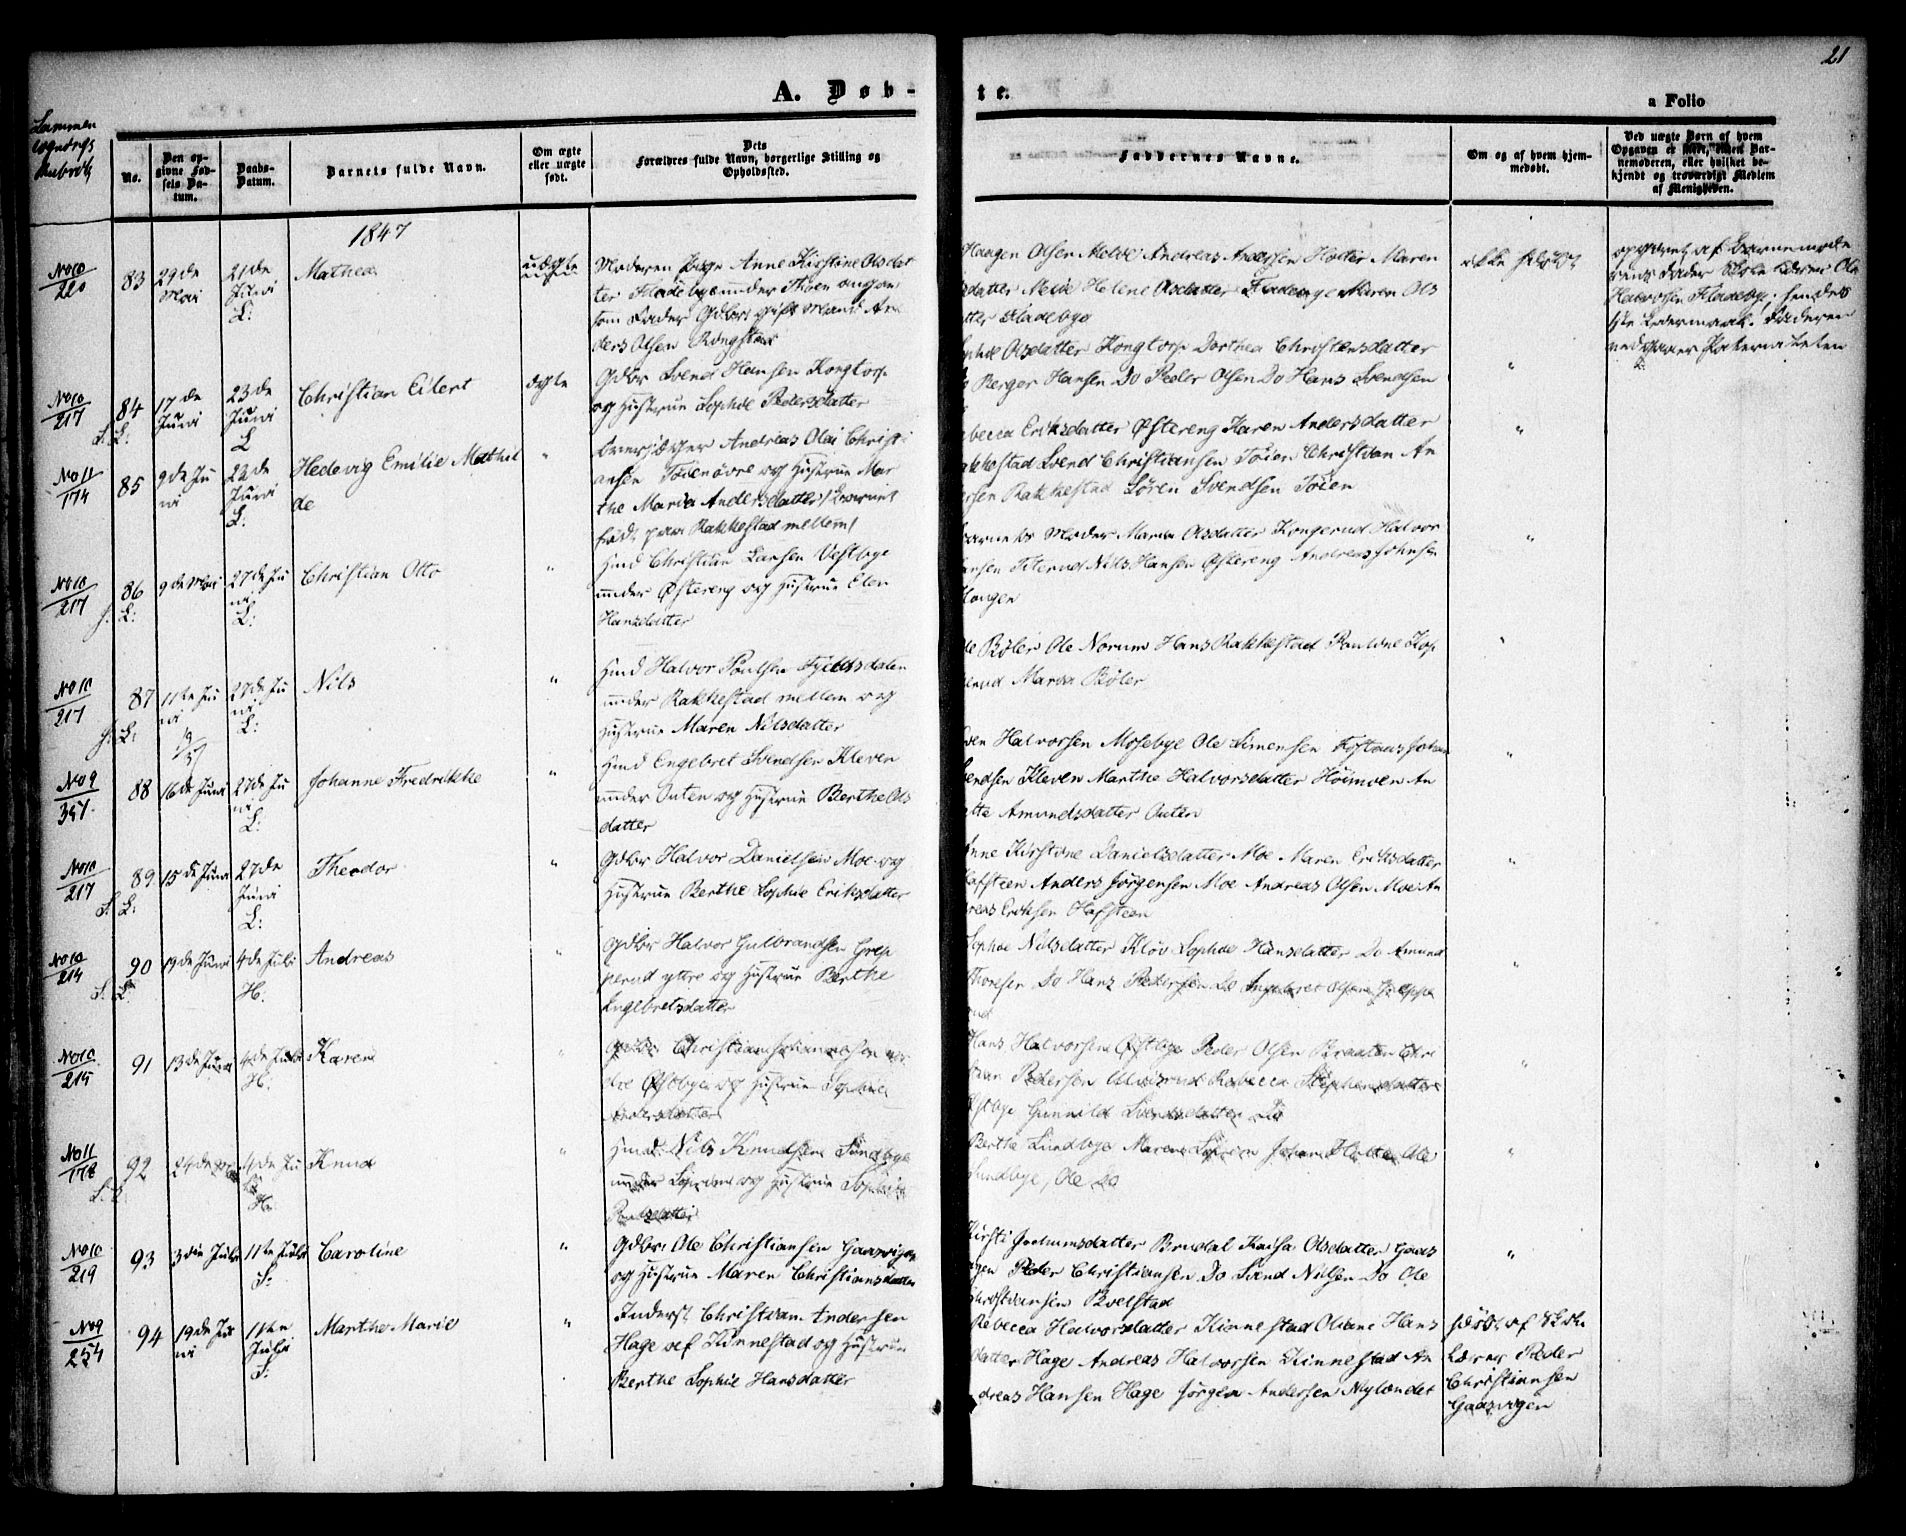 21
A. Døb-
te.
a Folio
Sammen
No.
Den op-
givne Fød-
sels Da-
tum.
Daabs-
Datum.
Barnets fulde Navn.
Om ægte
eller uægte
født.
Dets
Forældres fulde Navn, borgerlige Stilling og
Opholdssted.
Faddernes Navne.
Om og af hvem hjem-
medøbt.
Ved uægte Børn af hvem
Opgaven er skeet, enten Bar-
nemoderen, eller hvilket be-
kjendt og troværdigt Medlem
af Menigheden.
1847
No 10
220
83
29de
Mai
21de
Juni
L:
Mathea
uægte
Moderen Pige Anne Kirstine Olsdat
ter Fladebye under angav
som Fader Gdbr gift Mand An
ders Olsen Ringstad
Haagen Olsen Andreas Andersen Maren
Helene Olsdatter Fladebye Maren Ols
atter Fladebye
ikke
opgivet af Barnemode
rens Fader Ole
Halvorsen Fladebye
No 10
217
84
S. L:
17de
Juni
23de
Juni
L
Christian Eilert
ægte
Gdbr Svend Hansen Kongtorp
og Hustrue Sophie Pedersdatter
ophie Olsdatter Kongtorp Dorthea Christensdatter
Berger Hansen Do Peder Olsen Do Hans Svendsen
"
No 11
174
85
9de Ju
ni
23de
Juni
L:
Hedevig Emilie Mathil
de
"
Andreas Olai Christi
ansen Töienøvre og Hustrue Mar
the Maria Andersdatter / Barnet
født paa Rakkestad mellem /
ebecca Eriksdatter Østereng Karen Andersdatter
akkestad Svend Christiansen Töien Christian An
ersen Rakkestad Sören Svendsen Töien
"
No 10
217
86
S. L:
9de Mai
27de Ju
ni
L:
Christian Otto
"
Hmd Christian Larsen Vestbye
under Østereng og Hustrue Elen
Hansdatter
arnets Moder Maria Olsdatter Kongerud Halvor
ansen Nils Hansen Østereng Andreas Johnsen
Hougen
"
No 10
217
87
S. L:
11te Ju
ni
27de Ju
ni
L:
Nils
"
Hmd Halvor Poulsen Fjeldsdalen
under Rakkestad mellem og
Hustrue Maren Nilsdatter
le Böler Ole Norum Hans Rakkestad Pauline Kop
perud Maria Böler
"
No 9
357
88
16de Juni
27de Ju
ni
L:
Johanne Fredrikke
"
Hmd Engebret Svendsen Kleven
under Outen og Hustrue Berthe Ols
datter
ven Halvorsen Mosebye Ole Simensen Johan
vendsen Kleven Marthe Halvorsdatter Höimoen An
ette Amundsdatter Outen
"
No 10
217
89
S. L:
15de Juni
27de
Juni
L:
Theodor
"
Gdbr Halvor Danielsen Moe og
Hustrue Berthe Sophie Eriksdatter
Anne Kirstine Danielsdatter Moe Maren Eriksdatter
Hafsteen Anders Jørgensen Moe Andreas Olsen Moe An
dreas Eriksen Hafsteen
"
No 10
214
90
S. L:
19de Juni
4de Juli
H:
Andreas
"
Gdbr Halvor Gulbrandsen Grep
perud yttre og Hustrue Berthe
Engebretsdatter
Sophie Nilsdatter Kløv Sophie Hansdatter Do Amund
Thoresen Do Hans Pedersen Do Engebret Olsen Greppe
rud
"
No 10
215
91
13de Juni
4de Juli
H:
Karen
"
Gdbr Christian
dre Østbye og Hustrue Sophie
Hans Halvorsen Østbye Peder Olsen Braaten Chri
stian Pedersen Rebecca Stephensdatter
Østbye Gunnild Svendsdatter Do
"
No 11
178
92
24de Mai
4de Ju
li
H:
Knud
"
Hmd Nils Knudsen Sundbye
under og Hustrue Sophie
Berthe Sundbye Maren Johan Ole
Sundbye, Ole Do
"
No 10
219
93
3die Juli
11te Juli
S:
Caroline
"
Gdbr. Ole Christiansen Gaasvigen
og Hustrue Maren Christiansdatter
Kirsti Jochumsdatter Brudal Kaisa Olsdatter Gaas
vigen Peder Christiansen Do Svend Nilsen Do Ole
Christiansen Bøelstad
"
No 9
254
94
19de Ju
ni
11te
Juli
S:
Marthe Marie
"
Inderst Christian Andersen
Hage vef Kinnestad og Hustrue
Berthe Sophie Hansdatter
Rebecca Halvorsdatter Kinnestad Oliane Hans
datter Hage Andreas Halvorsen Kinnestad An
dreas Hansen Hage Jørgen Andersen Nylændet
døbt af Skole
Lærer Peder
Christiansen
Gaasvigen